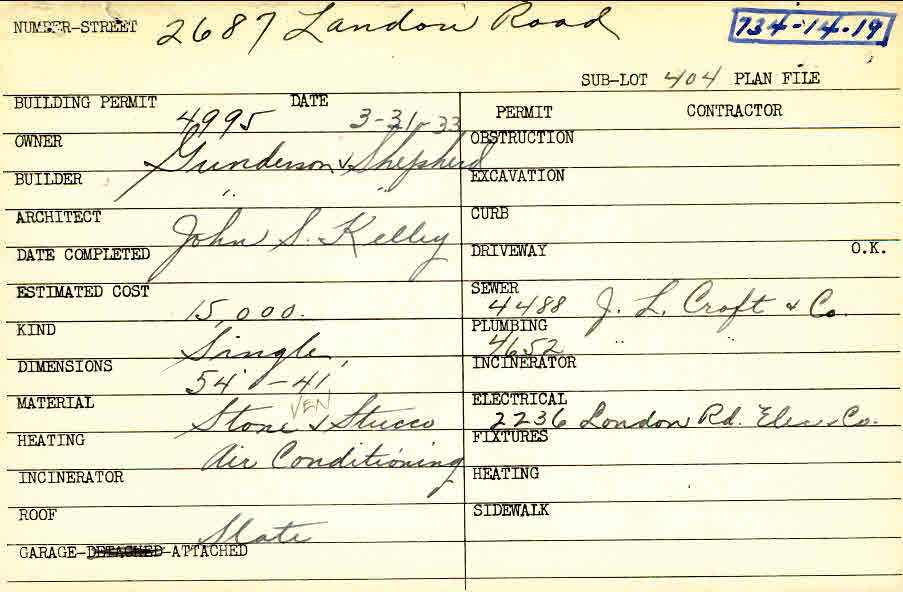 NUMBER-STREET 2687 Landon Road 734-14-19
SUB-LOT 404 PLAN FILE
BUILDING PERMIT 4995 DATE 3-31-33
OWNER Gunderson & Shepherd
BUILDER " "
ARCHITECT John S. Kelley
DATE COMPLETED
ESTIMATED COST 15,000.
KIND Single
DIMENSIONS 54' - 41'
MATERIAL Stone VEN & Stucco
HEATING Air Conditioning
INCINERATOR
ROOF Slate
GARAGE-DETACHED-ATTACHED
PERMIT CONTRACTOR
OBSTRUCTION
EXCAVATION
CURB
DRIVEWAY O.K.
SEWER 4488 J. L. Croft & Co.
PLUMBING 4652 "
INCINERATOR
ELECTRICAL 2236 London Rd. Elec. Co.
FIXTURES
HEATING "
SIDEWALK